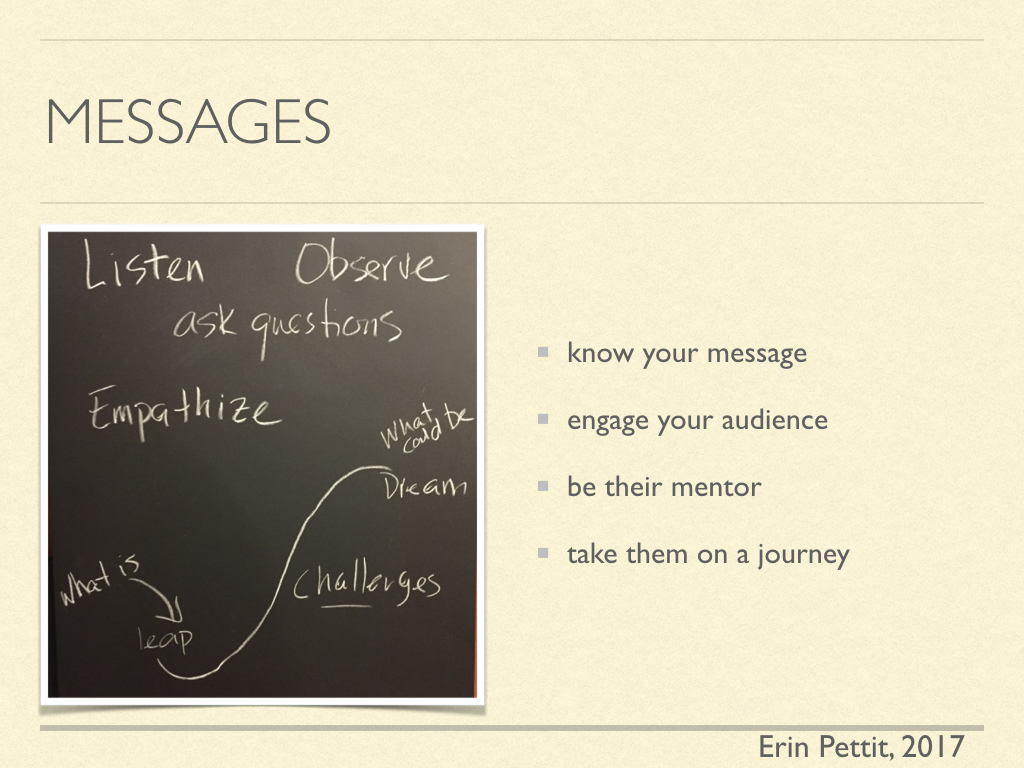 MESSAGES
Listen Observe
ask questions
Empathize
What
could be
Dream
What is
Challenges
leap
know your message
engage your audience
be their mentor
take them on a journey
Erin Pettit, 2017